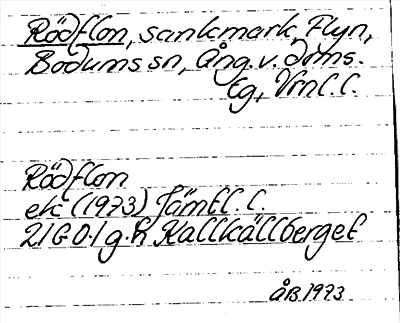 Rödflon, sankmark, Flyn,
Bodums sn, Ång. v. doms.
tg, Vrnl. l.
Rödflon
ek (1973) Jämtl. l.
21G 0.1 g.h Kallkällberget
ÅB 1973